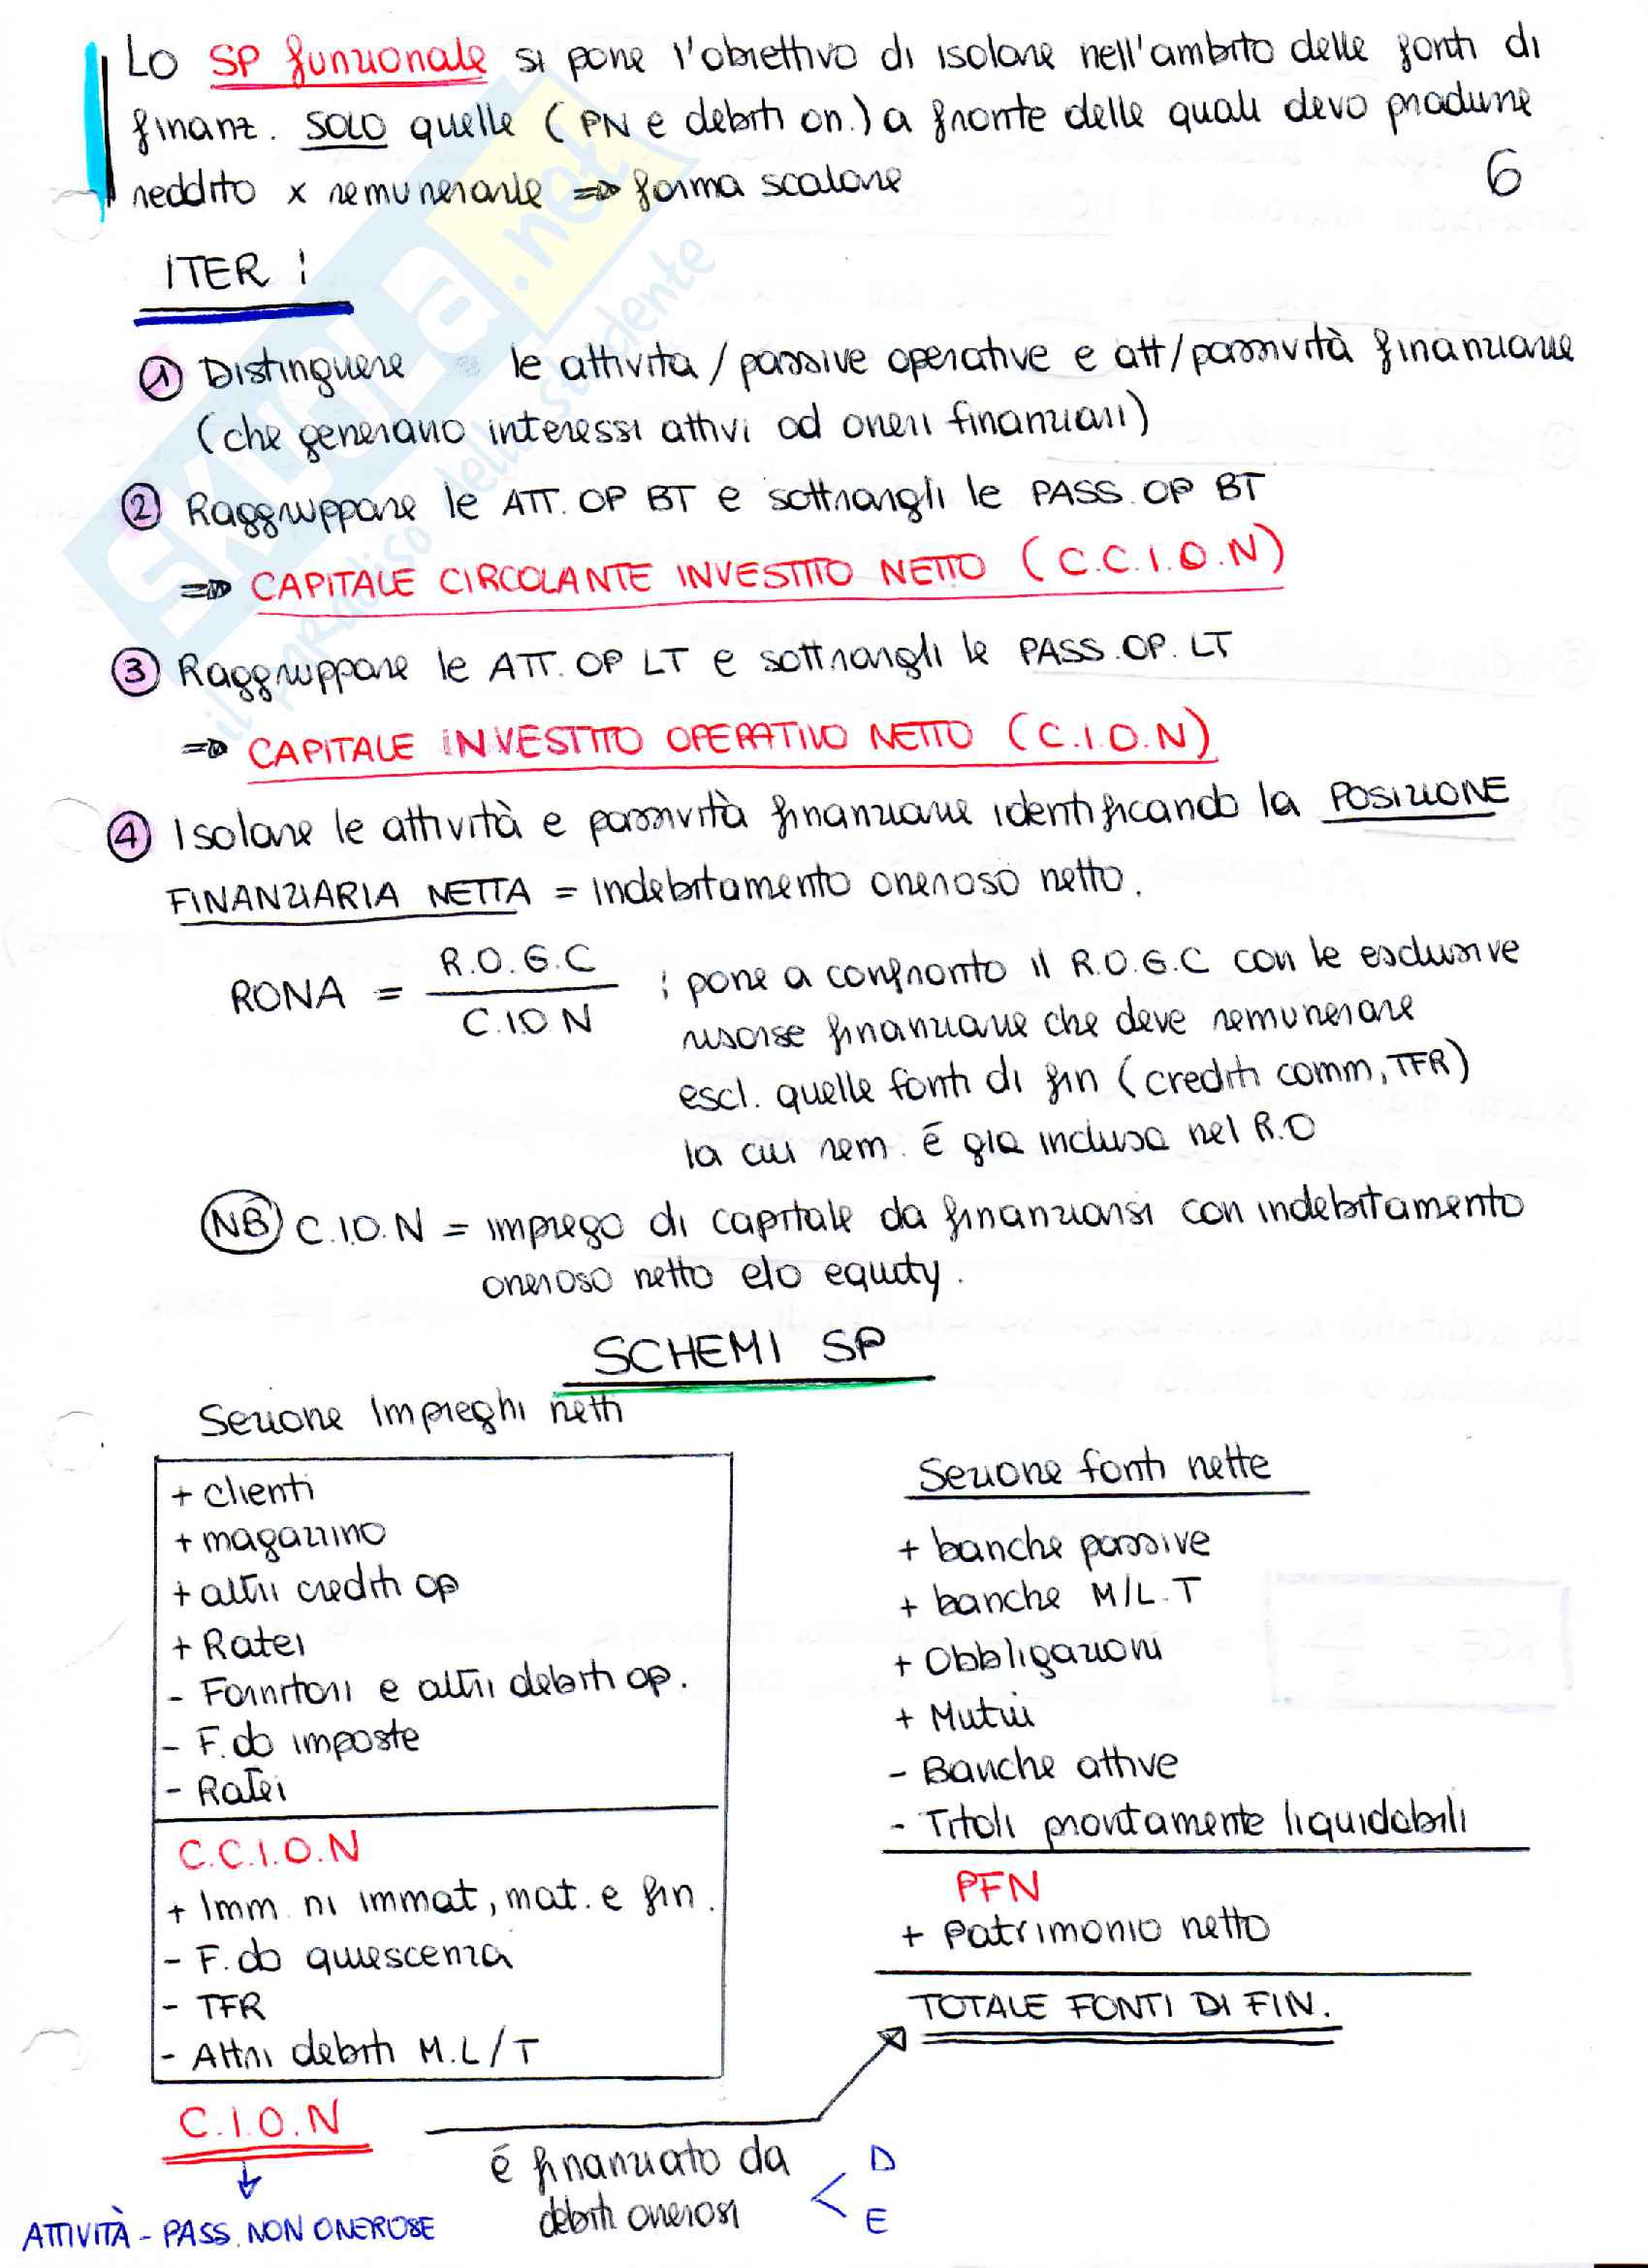 Lo SP funzionale si pone l'obiettivo di isolare nell'ambito delle fonti di
finanz. SOLO quelle (PN e debiti on.) a fronte delle quali devo produrre
reddito x remunerarle => forma scalare
6
ITER :
1 Distinguere le attività/passive operative e att/passività finanziarie
(che generano interessi attivi od oneri finanziari)
2 Raggruppare le ATT. OP BT e sottrargli le PASS. OP BT
=> CAPITALE CIRCOLANTE INVESTITO NETTO (C.C.I.O.N)
3 Raggruppare le ATT. OP LT e sottrargli le PASS. OP. LT
=> CAPITALE INVESTITO OPERATIVO NETTO (C.I.O.N)
4 Isolare le attività e passività finanziarie identificando la POSIZIONE
FINANZIARIA NETTA = indebitamento oneroso netto.
RONA = R.O.G.C / C.I.O.N : pone a confronto il R.O.G.C con le esclusive
risorse finanziarie che deve remunerare
escl. quelle fonti di fin (crediti comm, TFR)
la cui rem. é già inclusa nel R.O
NB C.I.O.N = impiego di capitale da finanziarsi con indebitamento
oneroso netto e/o equity.
SCHEMI SP
Sezione Impieghi netti
+ clienti
+ magazzino
+ altri crediti op
+ Ratei
- Fornitori e altri debiti op.
- F.do imposte
- Ratei
C.C.I.O.N
+ Imm.ni immat, mat. e fin.
- F.do quiescenza
- TFR
- Altri debiti M.L/T
C.I.O.N
ATTIVITÀ - PASS. NON ONEROSE
Sezione fonti nette
+ banche passive
+ banche M/L.T
+ Obbligazioni
+ Mutui
- Banche attive
- Titoli prontamente liquidabili
PFN
+ Patrimonio netto
TOTALE FONTI DI FIN.
é finanziato da
debiti onerosi
D
E
SKUOLA.net
il paradiso dello studente